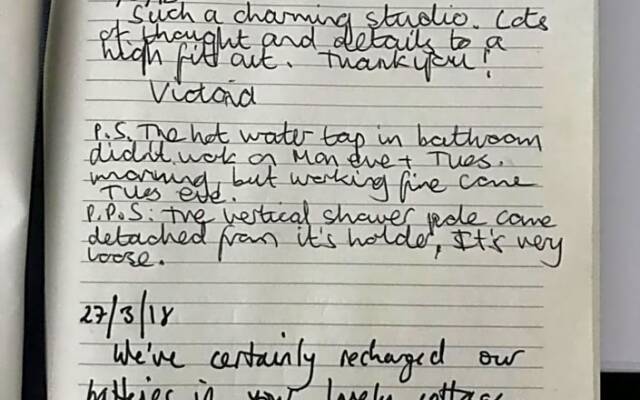 Such a charming studio. Lots
of thought and details to a
high fit out. Thank you!
Victoria
P.S. The hot water tap in bathroom
didn't work on Mon eve + Tues.
morning, but working fine come
Tues eve.
P.P.S: the vertical shower pole came
detached from it's holder, It's very
loose.
27/3/18
We've certainly recharged our
batteries in your lovely cottage